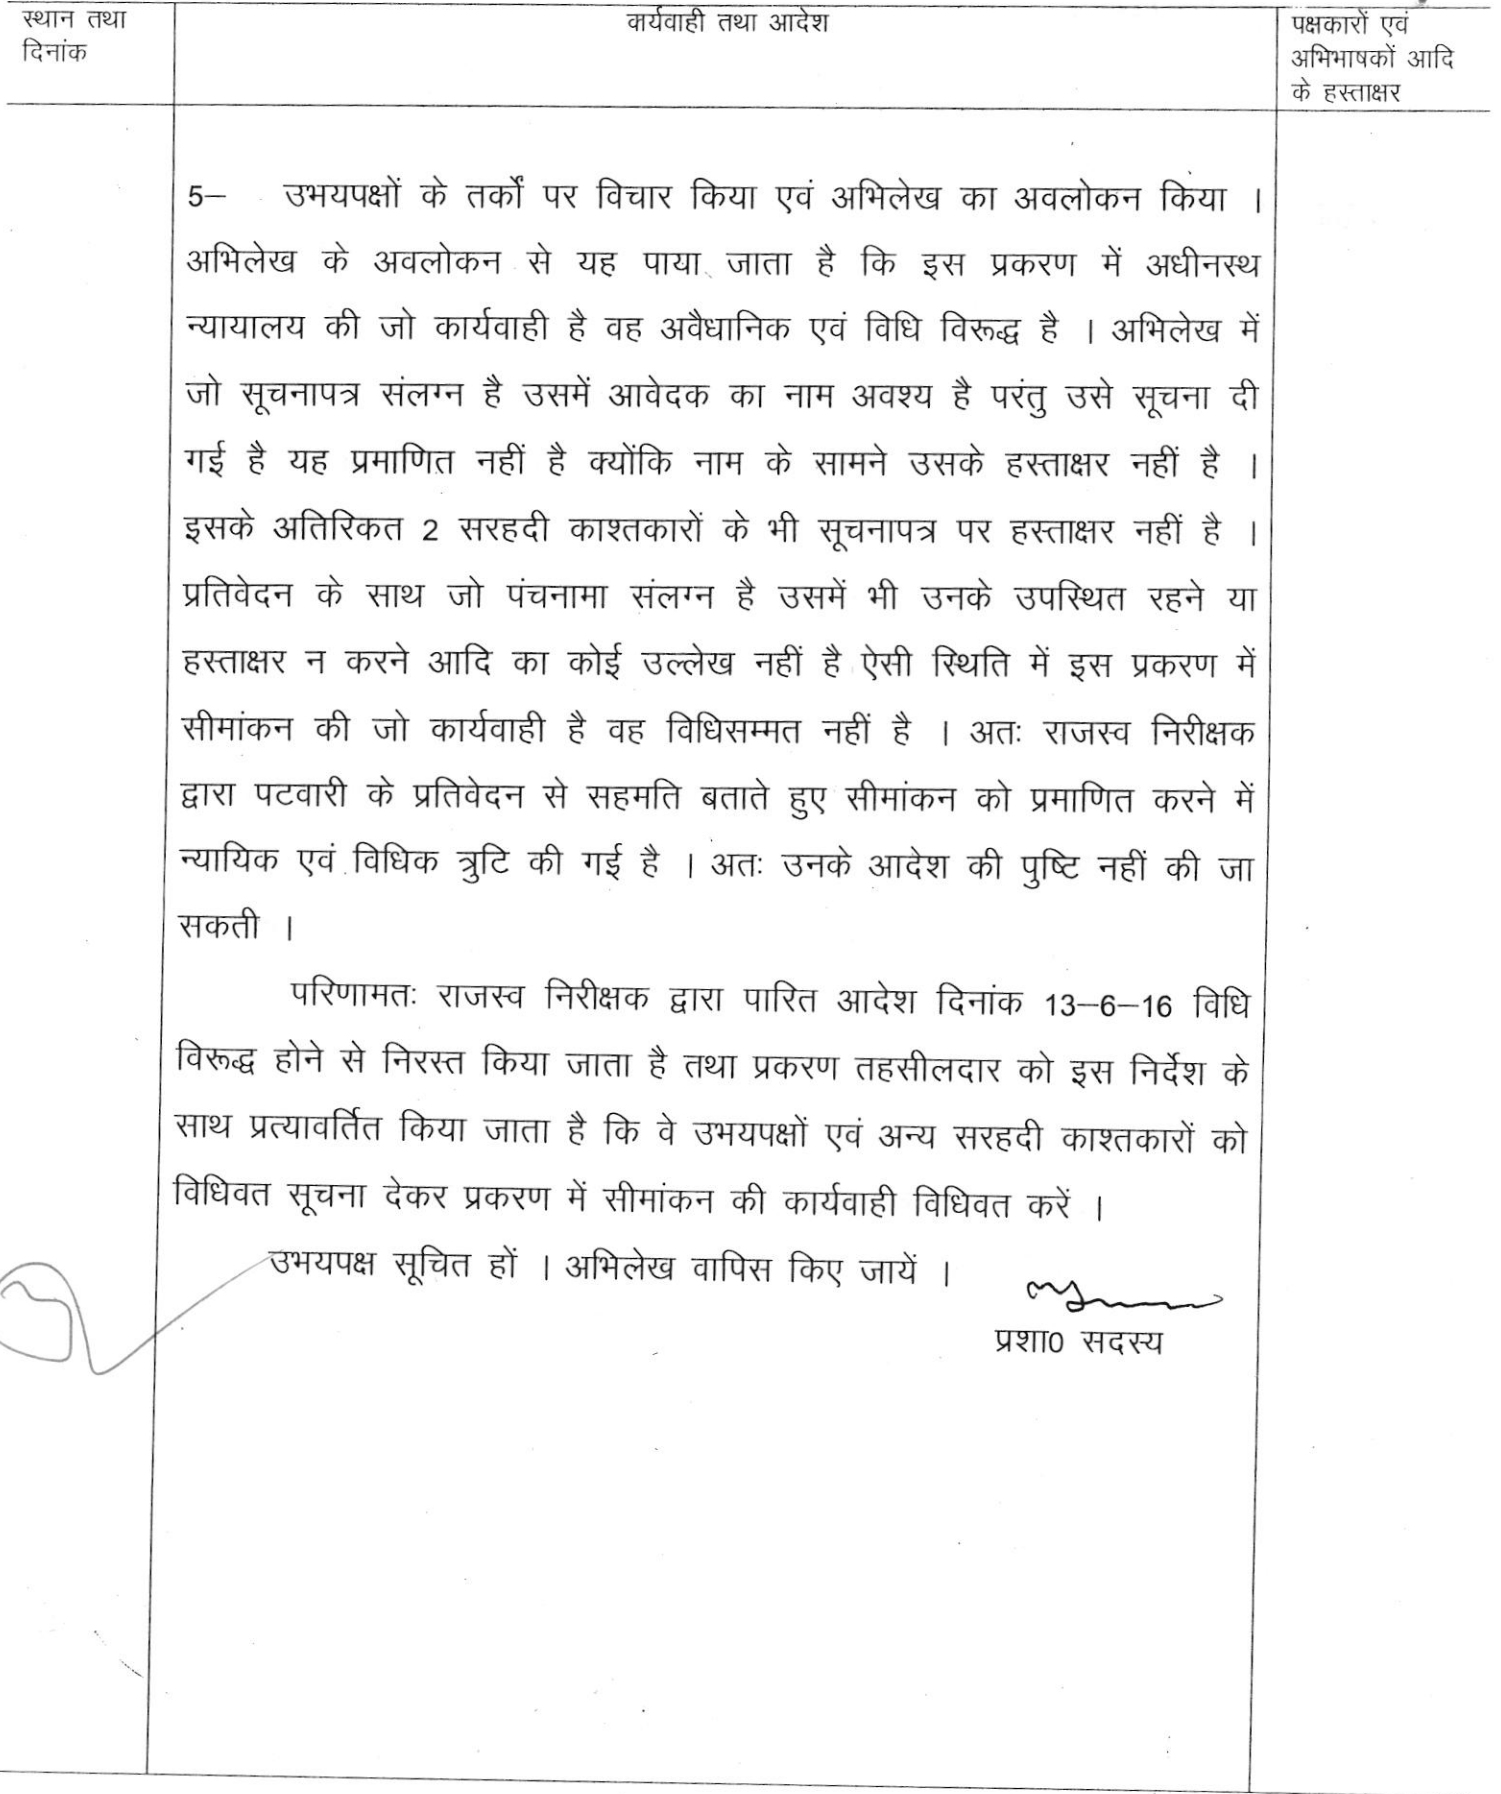 स्थान तथा
दिनांक
कार्यवाही तथा आदेश
पक्षकारों एवं
अभिभाषकों आदि
के हस्ताक्षर
5– उभयपक्षों के तर्कों पर विचार किया एवं अभिलेख का अवलोकन किया ।
अभिलेख के अवलोकन से यह पाया जाता है कि इस प्रकरण में अधीनस्थ
न्यायालय की जो कार्यवाही है वह अवैधानिक एवं विधि विरूद्ध है । अभिलेख में
जो सूचनापत्र संलग्न है उसमें आवेदक का नाम अवश्य है परंतु उसे सूचना दी
गई है यह प्रमाणित नहीं है क्योंकि नाम के सामने उसके हस्ताक्षर नहीं है ।
इसके अतिरिकत 2 सरहदी काश्तकारों के भी सूचनापत्र पर हस्ताक्षर नहीं है ।
प्रतिवेदन के साथ जो पंचनामा संलग्न है उसमें भी उनके उपस्थित रहने या
हस्ताक्षर न करने आदि का कोई उल्लेख नहीं है ऐसी स्थिति में इस प्रकरण में
सीमांकन की जो कार्यवाही है वह विधिसम्मत नहीं है । अतः राजस्व निरीक्षक
द्वारा पटवारी के प्रतिवेदन से सहमति बताते हुए सीमांकन को प्रमाणित करने में
न्यायिक एवं विधिक त्रुटि की गई है । अतः उनके आदेश की पुष्टि नहीं की जा
सकती ।
परिणामतः राजस्व निरीक्षक द्वारा पारित आदेश दिनांक 13–6–16 विधि
विरूद्ध होने से निरस्त किया जाता है तथा प्रकरण तहसीलदार को इस निर्देश के
साथ प्रत्यावर्तित किया जाता है कि वे उभयपक्षों एवं अन्य सरहदी काश्तकारों को
विधिवत सूचना देकर प्रकरण में सीमांकन की कार्यवाही विधिवत करें ।
उभयपक्ष सूचित हों । अभिलेख वापिस किए जायें ।
प्रशा0 सदस्य